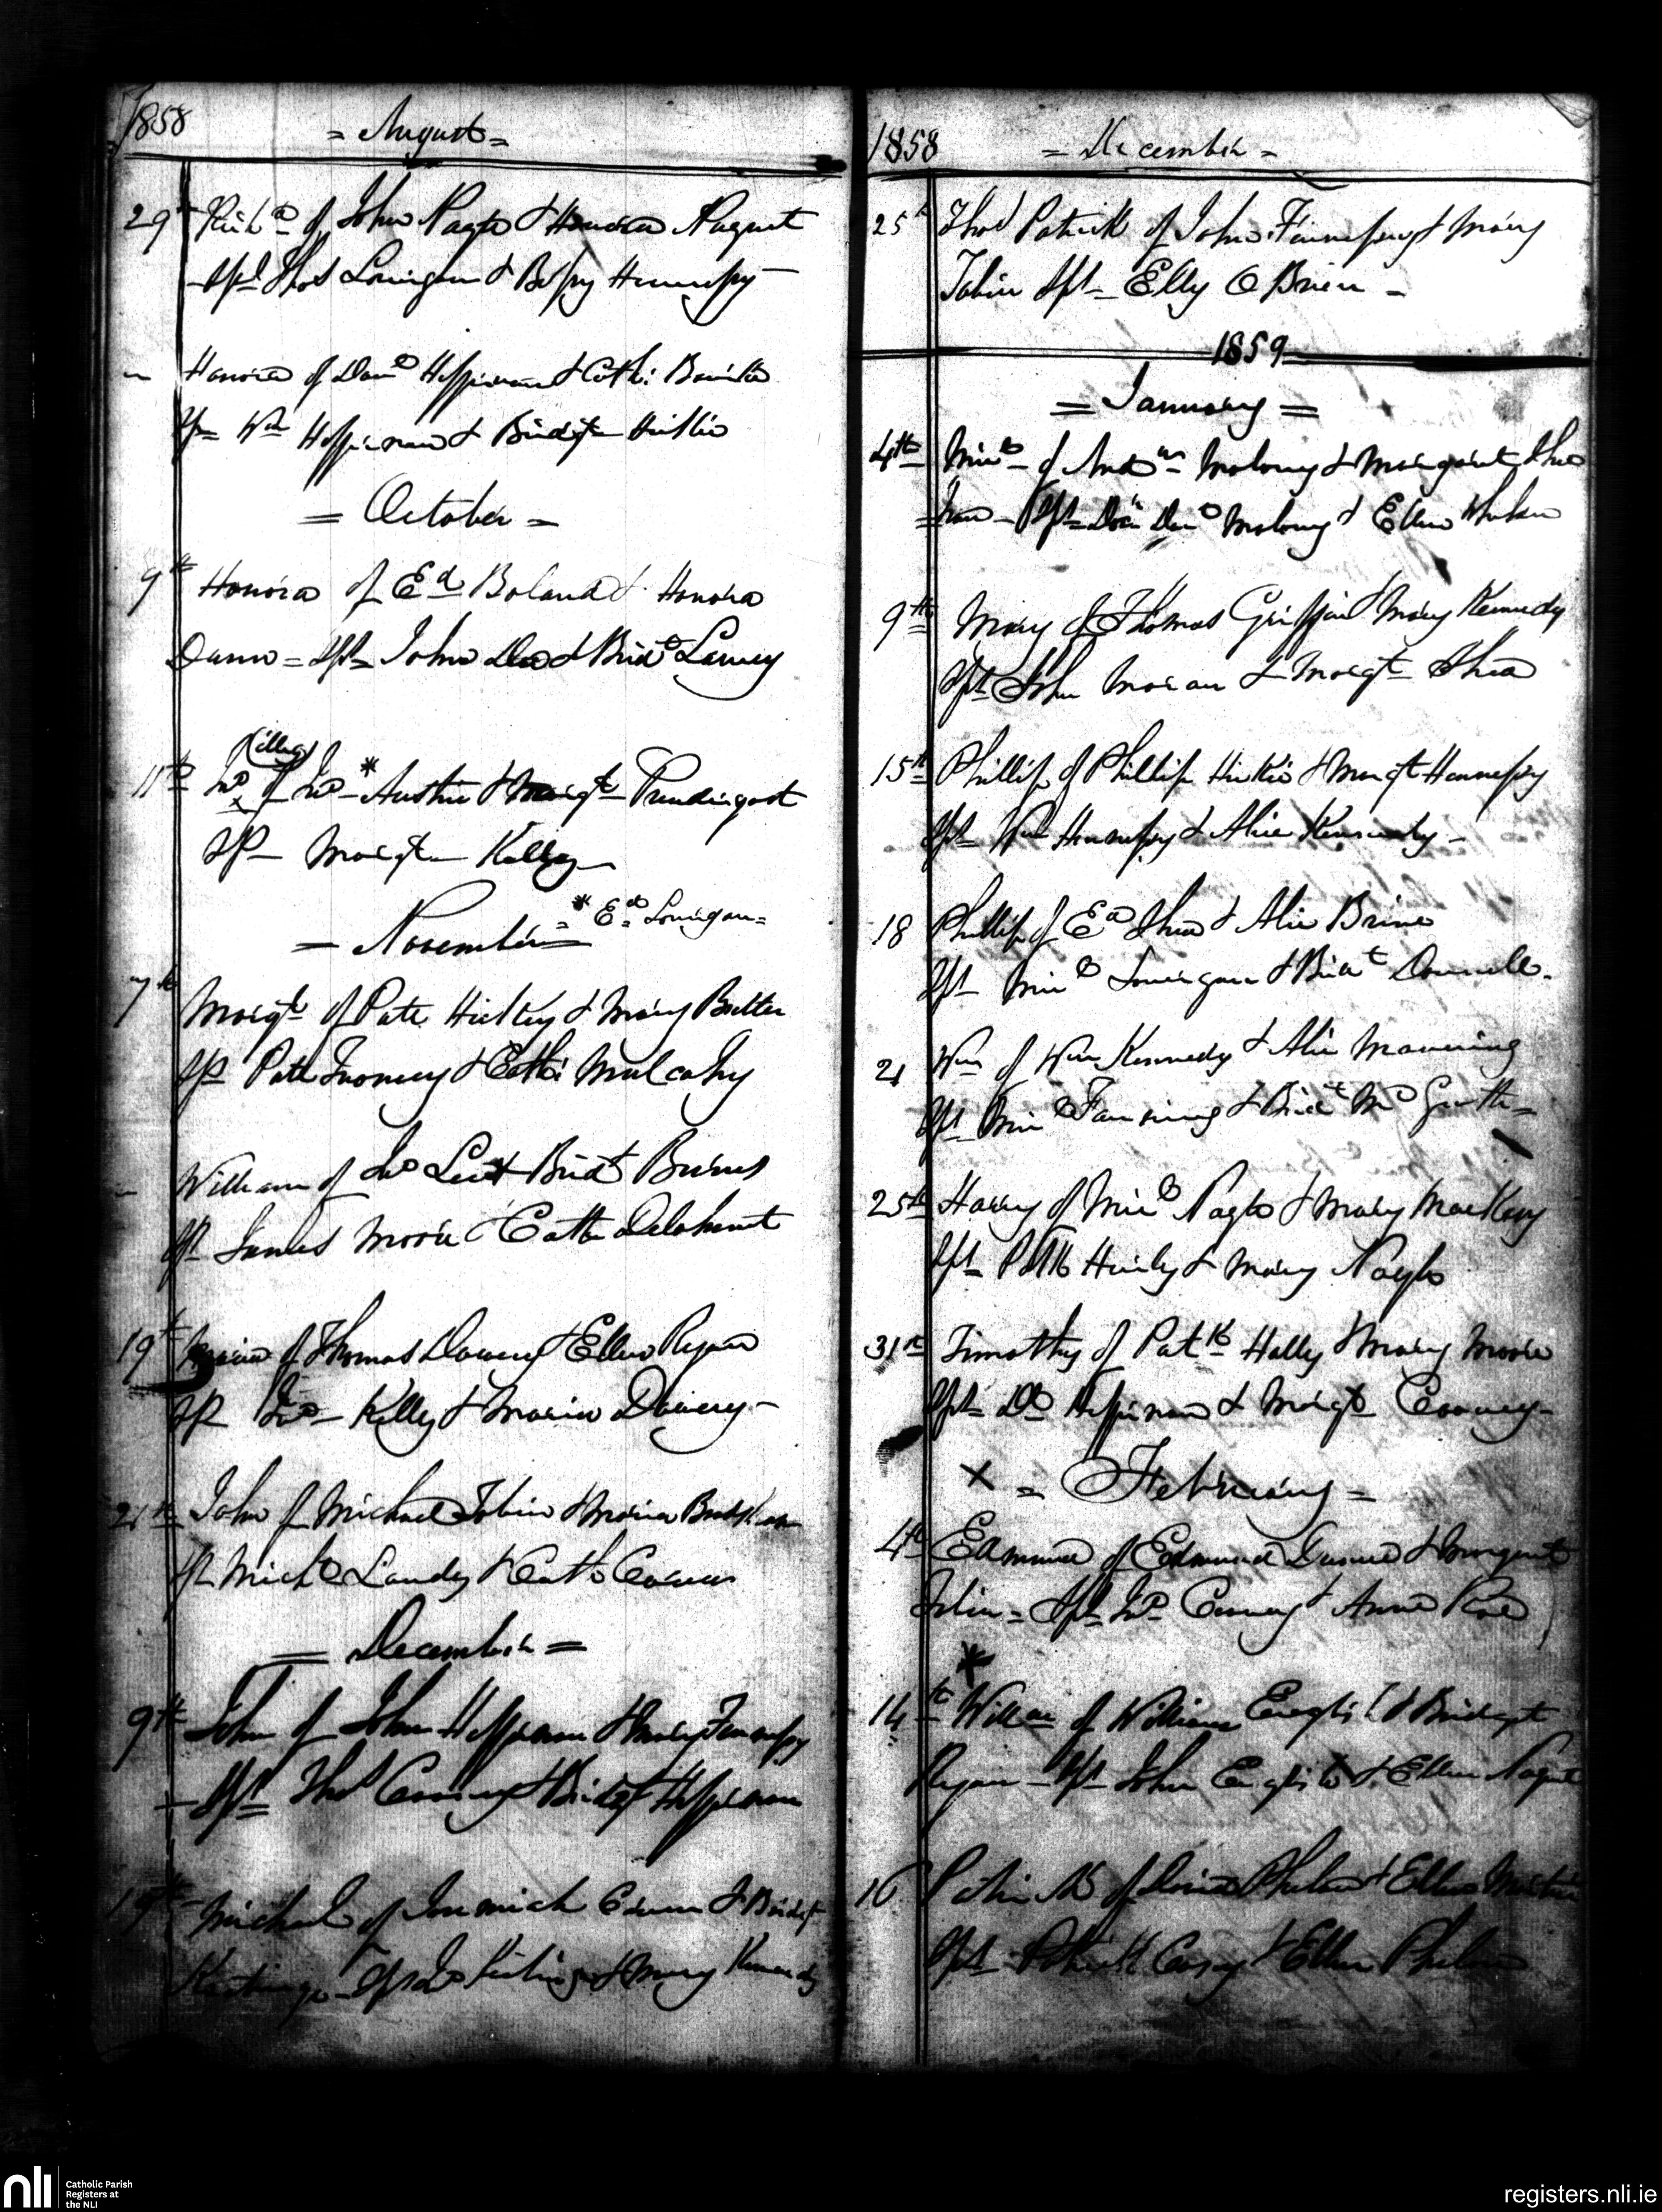 1858
= August =
29th Richd of John Nagle & Honora Nagent
Spt Thos Lonigan & Bessy Hennessy —
" Honora of Danl Heffernan & Cath:
Sp= Wm Heffernan & Bridgt Hickie
= October =
9th Honora of Ed Boland & Honora
Dunn = Spt= John & Bridt
11th (illeg) Jno of Jno * & Margt Prendergast
SP — Margt Kelly
= * Ed Lonigan =
— November =
7th Margt of Patt Hickey & Mary Butler
Sp Patt Twomey & Cathe Mulcahy
" William of Jno & Bridt Burns
Spt James Moore & Cathe Delahunt
19th of Thomas Dowery & Ellen Ryan
SP Jno — Kelly & Maria Dowery —
21st John of Michael Tobin & Maria
Sp Michl Landy & Cath
= December =
9th John of John Heffernan & Mary Fennessy
— Spt Thos & Bridgt Heffernan
19th Michael of & Bridgt
Keating — Sps Jno Keating & Mary Kennedy
1858
= December =
25th Thos Patrick of John Fennessy & Mary
Tobin Spt — Elly O Brien —
1859
= January =
4th Michl — of Andw Molony & Margaret Shee
= han — Spt = Danl Molony & Ellen Whelan
9th Mary of Thomas Griffin & Mary Kennedy
Spt John Moran & Margt Shea
15th Phillip of Phillip Hickie & Margt Hennessy
Spt Wm Hennessy & Alice Kennedy —
18 Phillip of Ed Shea & Alice Brine
Spt — Michl Lonergan & Bridt Donnell.
21 Wm of Wm Kennedy & Alice Manning
Spt Michl Fanning & Bridt Mc Grath =
25th Harry of Michl Nagle & Mary Mackey
Spt= Pattk Hurly & Mary Nagle
31st Timothy of Patk Hally & Mary Moore
Spt= Heffernan & Margt Conway —
x = February =
4th Edmund of Edmund & Margaret
Tobin = Spt= Jno & Anne Roe
*
14th William of William English & Bridget
Ryan — Spt — John English & Ellen
16 of Phelan & Ellen
Spt — Patrick Casey & Ellen Phelan
nli
Catholic Parish
Registers at
the NLI
registers.nli.ie